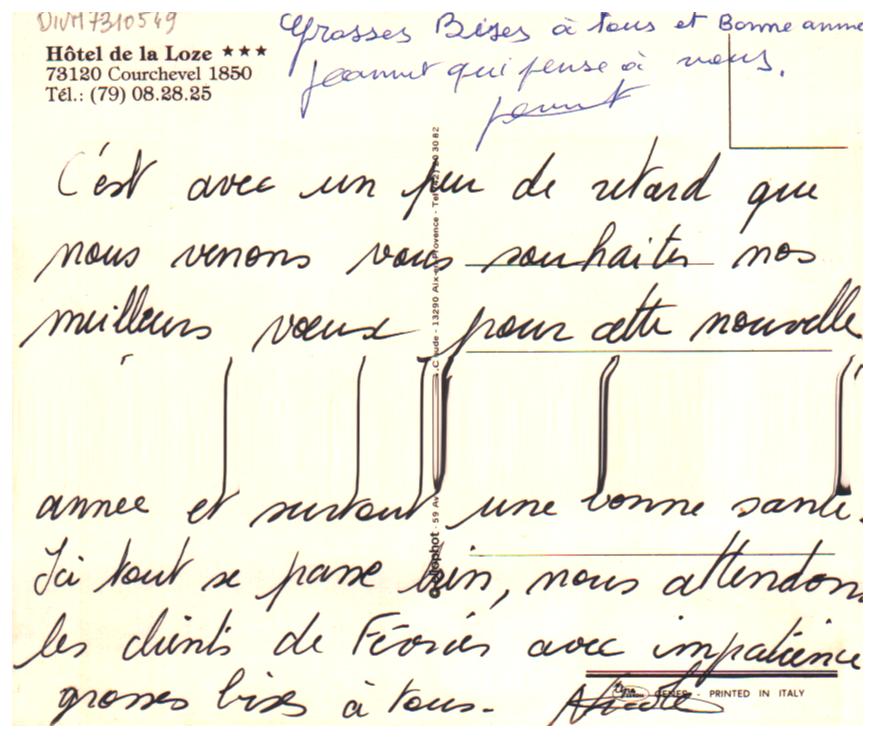 DIVM7310549
Grosses Bises à tous et Bonne anné
Hôtel de la Loze ★★★
73120 Courchevel 1850
Tél.: (79) 08.28.25
Jeannot qui pense à vous.
C'est avec un peu de retard que
nous venons vous souhaiter nos
meilleurs vœux pour cette nouvelle
année et surtout une bonne santé.
Ici tout se passe bien, nous attendons
les clients de Février avec impatience
grosses bises à tous.
Nicole
PRINTED IN ITALY
13290 Aix-en-Provence